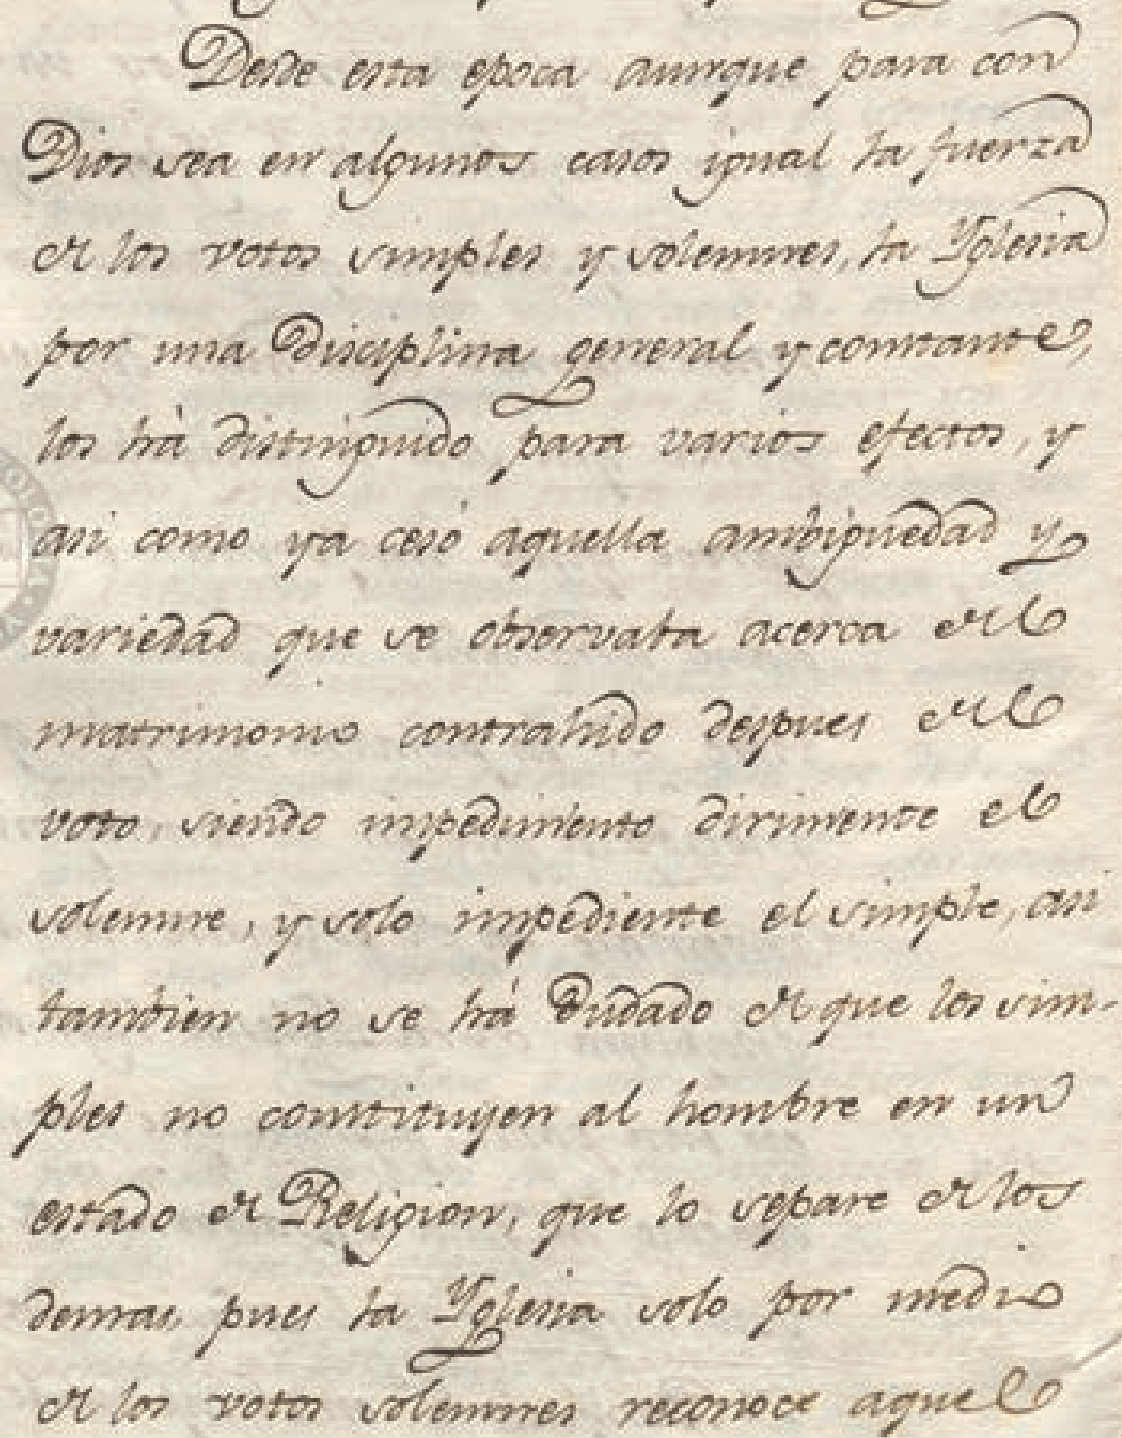 Desde esta epoca aunque para con
Dios sea en algunos casos igual la fuerza
de los votos simples y solemnes, la Yglesia
por una Disciplina general y constante,
los há distinguido para varios efectos, y
asi como ya cesó aquella ambiguedad y
variedad que se observaba acerca del
matrimonio contrahido despues del
voto, siendo impedimento dirimente el
solemne, y solo impediente el simple, asi
tambien no se há dudado de que los sim-
ples no constituyen al hombre en un
estado de Religion, que lo separe de los
demas, pues la Yglesia solo por medio
de los votos solemnes reconoce aquel